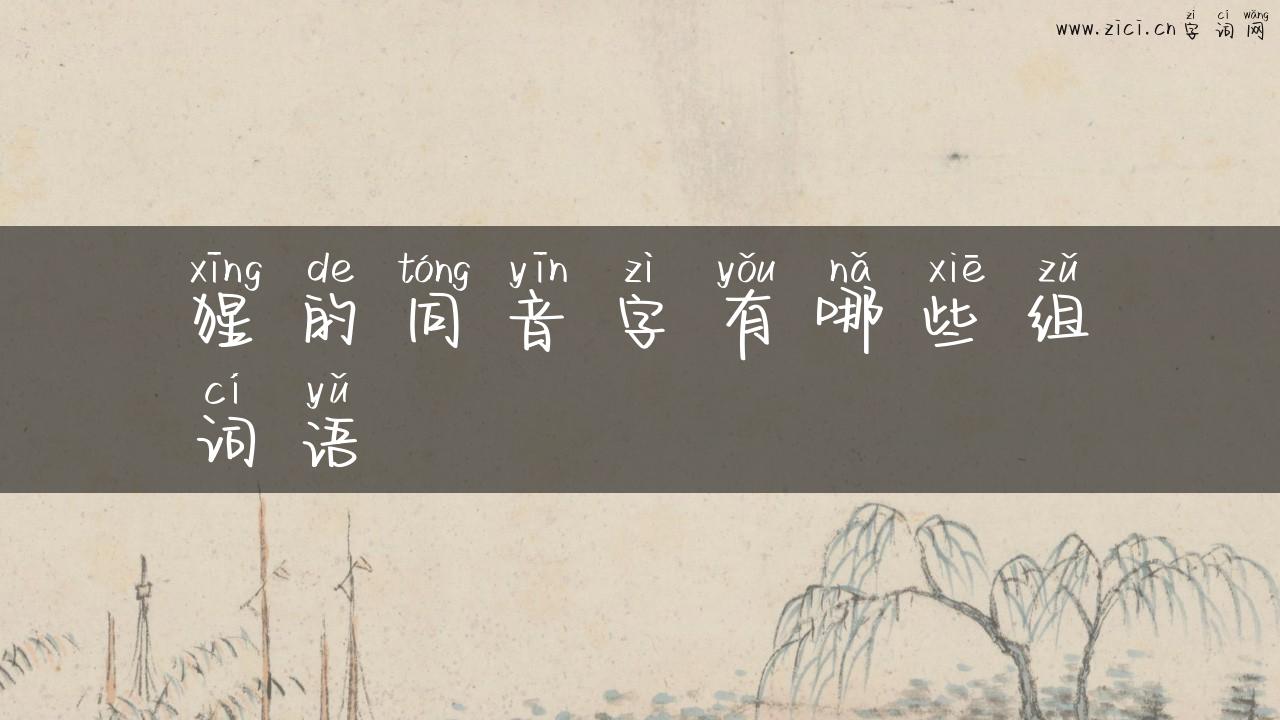 zì cí wǎng
www.zici.cn 字词网
xīng de tóng yīn zì yǒu nǎ xiē zǔ
猩的同音字有哪些组
cí yǔ
词语